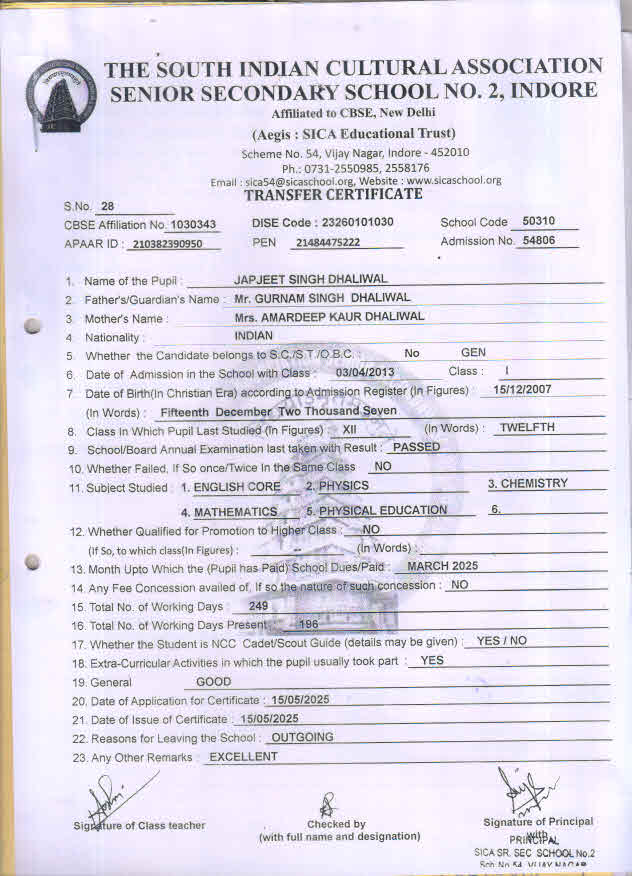 THE SOUTH INDIAN CULTURAL ASSOCIATION
SENIOR SECONDARY SCHOOL NO. 2, INDORE
Affiliated to CBSE, New Delhi
(Aegis : SICA Educational Trust)
Scheme No. 54, Vijay Nagar, Indore - 452010
Ph.: 0731-2550985, 2558176
Email : sica54@sicaschool.org, Website : www.sicaschool.org
TRANSFER CERTIFICATE
S.No. 28
CBSE Affiliation No. 1030343 DISE Code : 23260101030 School Code 50310
APAAR ID : 210382390950 PEN 21484475222 Admission No. 54806
1. Name of the Pupil : JAPJEET SINGH DHALIWAL
2. Father's/Guardian's Name : Mr. GURNAM SINGH DHALIWAL
3. Mother's Name : Mrs. AMARDEEP KAUR DHALIWAL
4. Nationality : INDIAN
5. Whether the Candidate belongs to S.C./S.T./O.B.C. : No GEN
6. Date of Admission in the School with Class : 03/04/2013 Class : I
7. Date of Birth(In Christian Era) according to Admission Register (In Figures) : 15/12/2007
(In Words) : Fifteenth December Two Thousand Seven
8. Class In Which Pupil Last Studied (In Figures) : XII (In Words) : TWELFTH
9. School/Board Annual Examination last taken with Result : PASSED
10. Whether Failed, If So once/Twice In the Same Class NO
11. Subject Studied : 1. ENGLISH CORE 2. PHYSICS 3. CHEMISTRY
4. MATHEMATICS 5. PHYSICAL EDUCATION 6.
12. Whether Qualified for Promotion to Higher Class : NO
(If So, to which class(In Figures) : -- (In Words) :
13. Month Upto Which the (Pupil has Paid) School Dues/Paid : MARCH 2025
14. Any Fee Concession availed of, If so the nature of such concession : NO
15. Total No. of Working Days : 249
16. Total No. of Working Days Present : 196
17. Whether the Student is NCC Cadet/Scout Guide (details may be given) : YES / NO
18. Extra-Curricular Activities in which the pupil usually took part : YES
19. General GOOD
20. Date of Application for Certificate : 15/05/2025
21. Date of Issue of Certificate : 15/05/2025
22. Reasons for Leaving the School : OUTGOING
23. Any Other Remarks : EXCELLENT
Signature of Class teacher
Checked by
(with full name and designation)
Signature of Principal
with
PRINCIPAL
SICA SR. SEC SCHOOL No.2
Sch. No 54, VIJAY NAGAR